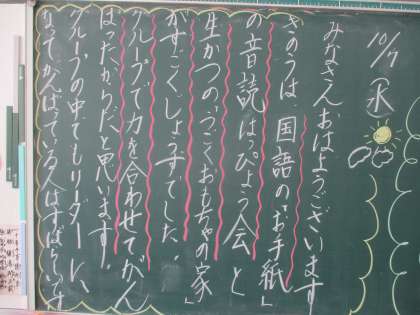 10/7
(水)
みなさんおはようございます
きのうは、国語の「お手紙」
の音読はっぴょう会」と
生かつの「うごくおもちゃの家」
がすごくしょうずでした。
グループで力を合わせてがん
ばったからだと思います。
グループの中でもリーダーに
なってがんばっている人はすばらしいです